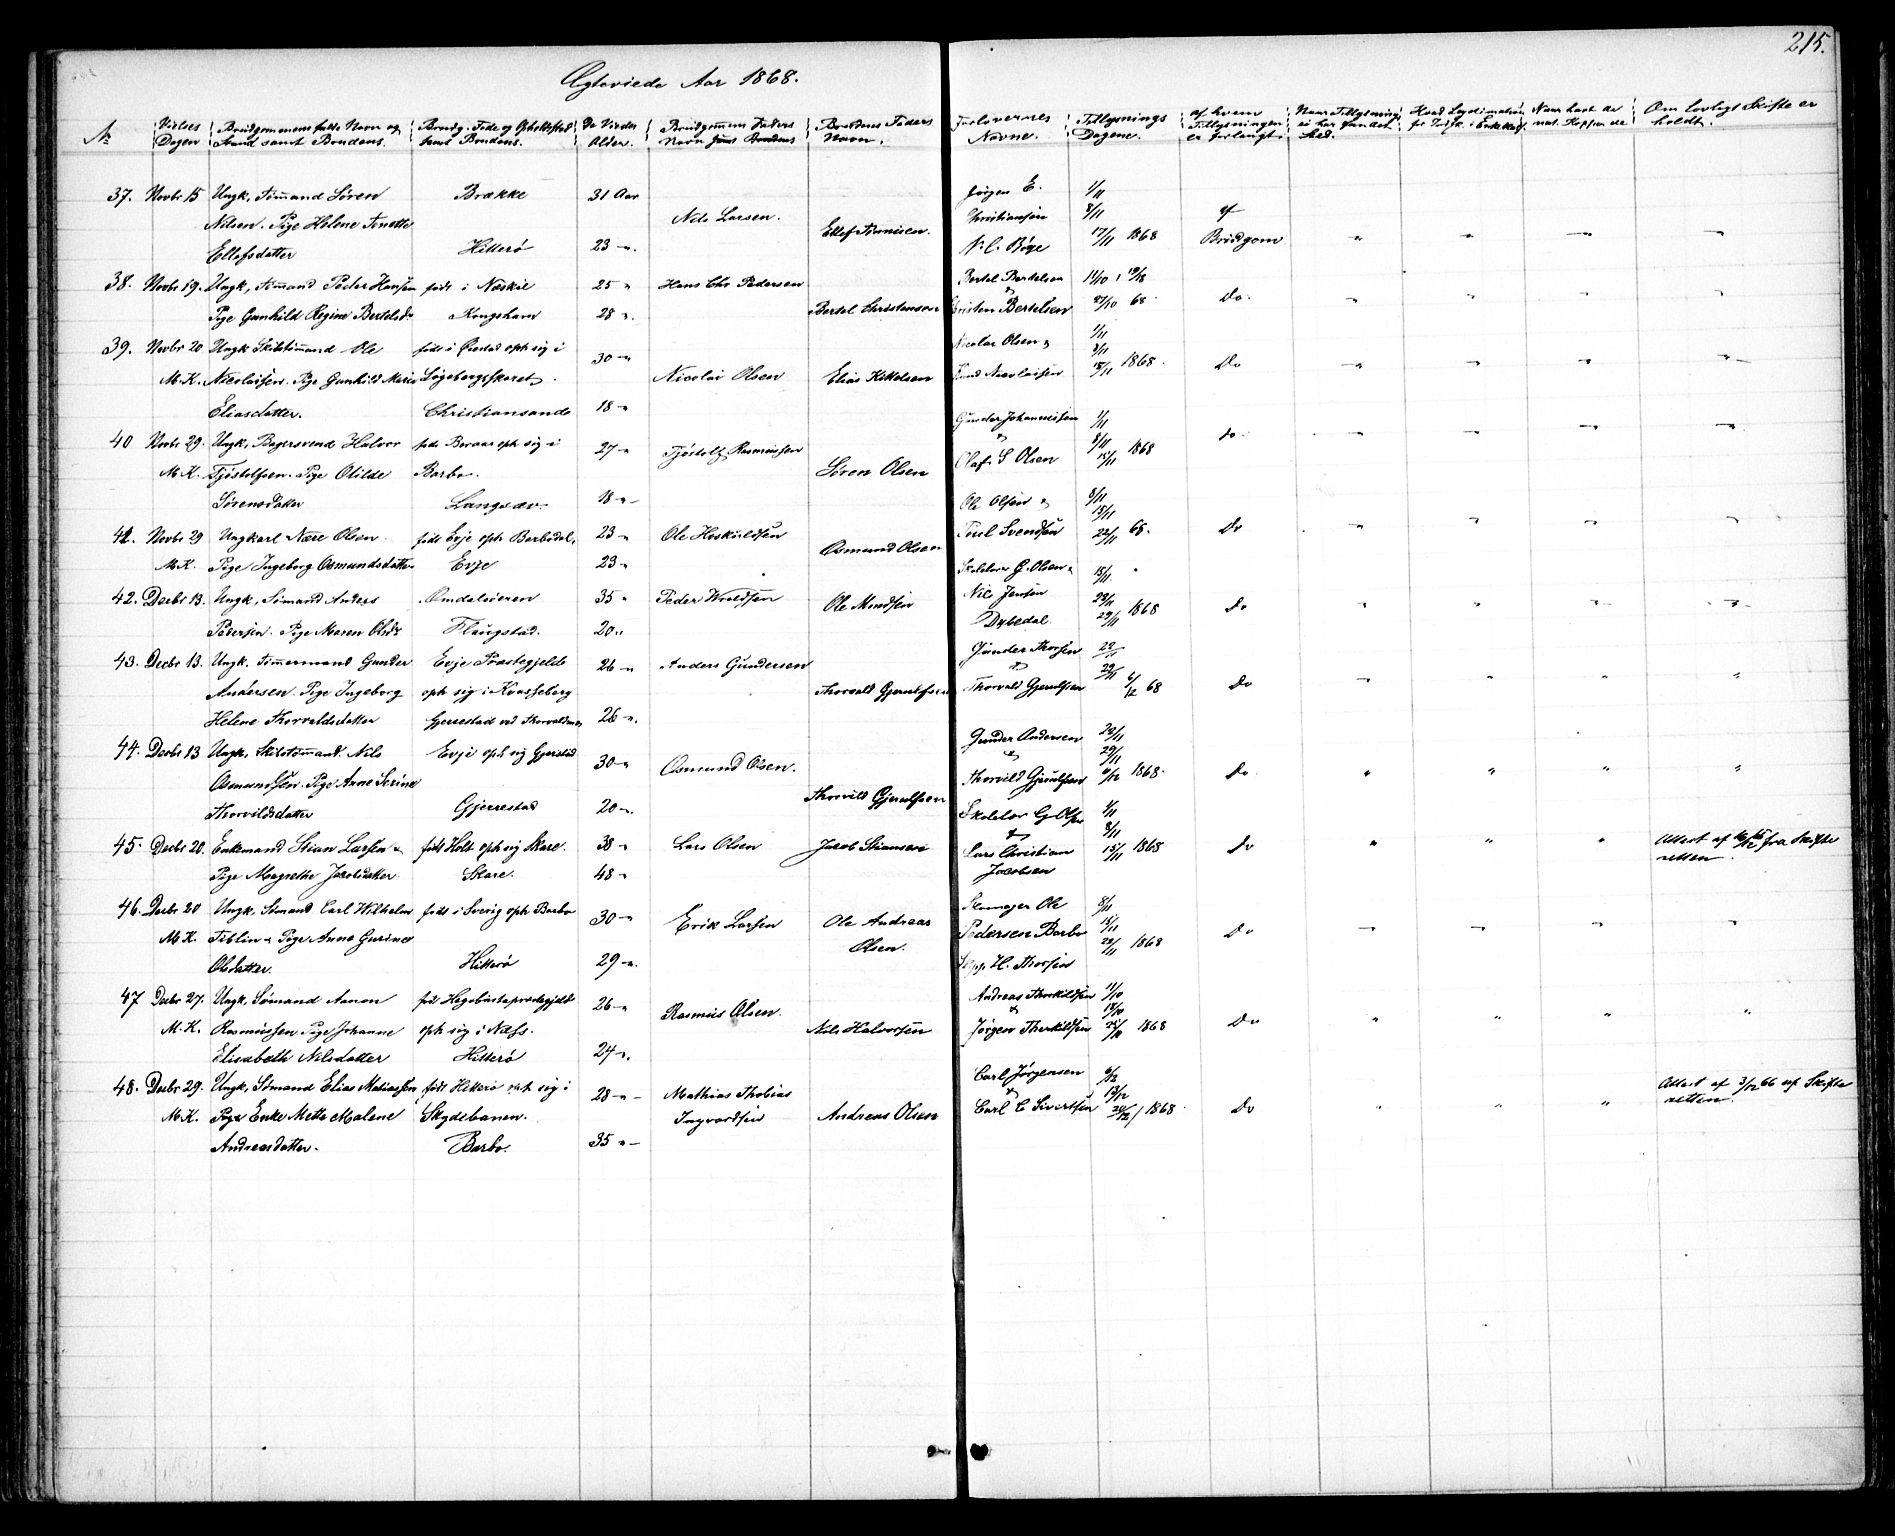 215.
Ægteviede Aar 1868.
No
Vielses Dagen
Brudgommens fulde Navn og Stand samt Brudens.
Brudg. Føde og Opholdssted samt Brudens.
De Viedes Alder.
Brudgommens Faders Navn
Brudens Faders Navn.
Forlovernes Navne.
Tillysnings Dagene.
af hvem Tillysningen er forlangt
Naar Tillysning ei har fundet Sted.
Hvad Legitimation
Naar havt de nat. Kopper
Om lovligt Skifte er holdt.
37. Novbr 15 Ungk. Sømand Søren Brække 31 Aar Jørgen E. 1/11
Nilsen. Pige Helene Tonette Nils Larsen. Christiansen 8/11 af
Ellefsdatter Hitterø 23 " Ellef Tønnisen. N. C. Bøge 17/11 1868 Brudgom " " " "
38. Novbr 19. Ungk. Sømand Peder Hansen født i Næskil 25 " Hans Chr Pedersen Bertel Bertelsen 11/10 18/10
Pige Gunhild Regine Bertelsd. Kongshavn 28 " Bertel Christensen & Christen Bertelsen 27/10 68 Do. " " " "
39. Novbr 20 Ungk Skibstømmand Ole født i Øiestad oph sig i 30 " Nicolai Olsen & 1/11 8/11
M.K. Nicolaisen. Pige Gunhild Marie Songebergskaret Nicolai Olsen Elias Kittelsen Knud Nicolaisen 15/11 1868 Do " " " "
Eliasdatter. Christiansands 18 "
40 Novbr 29. Ungk. Bagersvend Halvor født Beraas oph sig i 27 " Tjøstolf Rasmussen Gunder Johannissen 1/11 do " " " "
M.K. Tjøstolfsen. Pige Otilde Barbo. Søren Olsen & Olaf S Olsen 8/11 15/11 1868
Sørensdatter Langsæv 18 "
41. Novbr 29 Ungkarl Nære Olsen født Evje oph Barbodal, 23 " Ole Hoskuldsen Ole Olsen & 8/11 15/11
M.K. Pige Ingeborg Osmundsdatter Evje 23 " Osmund Olsen Teril Svendsen 22/11 68. Do " " " "
42. Decbr 13. Ungk. Sømand Anders Omdalsøren 35 " Peder Wroldsen Ole Mindsen Skoleholder G. Olsen & 15/11
Pedersen. Pige Maren Olsdr Flangstad. 20 " Nic Jensen Dybedal 22/11 29/11 1868 Do " " " "
43. Decbr 13. Ungk. Tømmermand Gunder Evje Præstegjeld 26 " Anders Gundersen Gunder Thorsen 22/11
Andersen. Pige Ingeborg oph sig i Kvasseberg Thorvald Gjerulfsen & Thorvald Gjerulfsen 29/11 6/12 68 Do " " " "
Helene Thorvaldsdatter Gjerrestad ved Thorvaldsnes 26 "
44. Decbr 13 Ungk. Skibstømmand. Nils Evje oph sig Gjerstad 30 " Osmund Olsen. Gunder Andersen 22/11
Osmundsen. Pige Anne Serine & 29/11
Thorvildsdatter Gjerrestad 20 " Thorvild Gjerulfsen Thorvild Gjerulfsen 6/12 1868. Do " " " "
45. Decbr 20. Enkemand Stian Larsen & født Holt oph sig Skare. 38 " Lars Olsen Jacob Stiansen Skoleholder G. Olsen 1/11 8/11
Pige Magrethe Jacobsdatter Skare. 48 " & Lars Christian Jacobsen 15/11 1868 Do " " " Attest af fra Skifteretten.
46. Decbr 20 Ungk. Sømand Carl Wilhelm født i Sverig oph Barbo 30 " Erik Larsen Ole Andreas Olsen. Skomager Ole 8/11
M.K. Tiblin & Pige Anne Gurine Pedersen Barbo 15/11 22/11 1868 Do " " " "
Olsdatter. Hitterø 29 " Skpp. H. Thorsen
47 Decbr 27. Ungk. Sømand Aanon født Hegebostad præstegjeld 26 " Rasmus Olsen. Andreas Thorkildsen 11/10
M.K. Rasmussen Pige Johanne oph sig i Næss. Nils Halvorsen & Jørgen Therkildsen 18/10 25/10 1868 Do " " " "
Elisabeth Nilsdatter Hitterø 24 "
48. Decbr 29. Ungk. Sømand Elias Matiassen født Hitterø oph sig i 28 " Mathias Thobias Carl Jørgensen 6/12
M.K. Pige Enke Mette Malene Skydebanen. Ingvardsen Andreas Olsen & Carl C Sivertsen 13/12 20/12 1868 Do " " " Attest af 3/12 66 af Skifteretten.
Andreasdatter. Barbo. 35 "